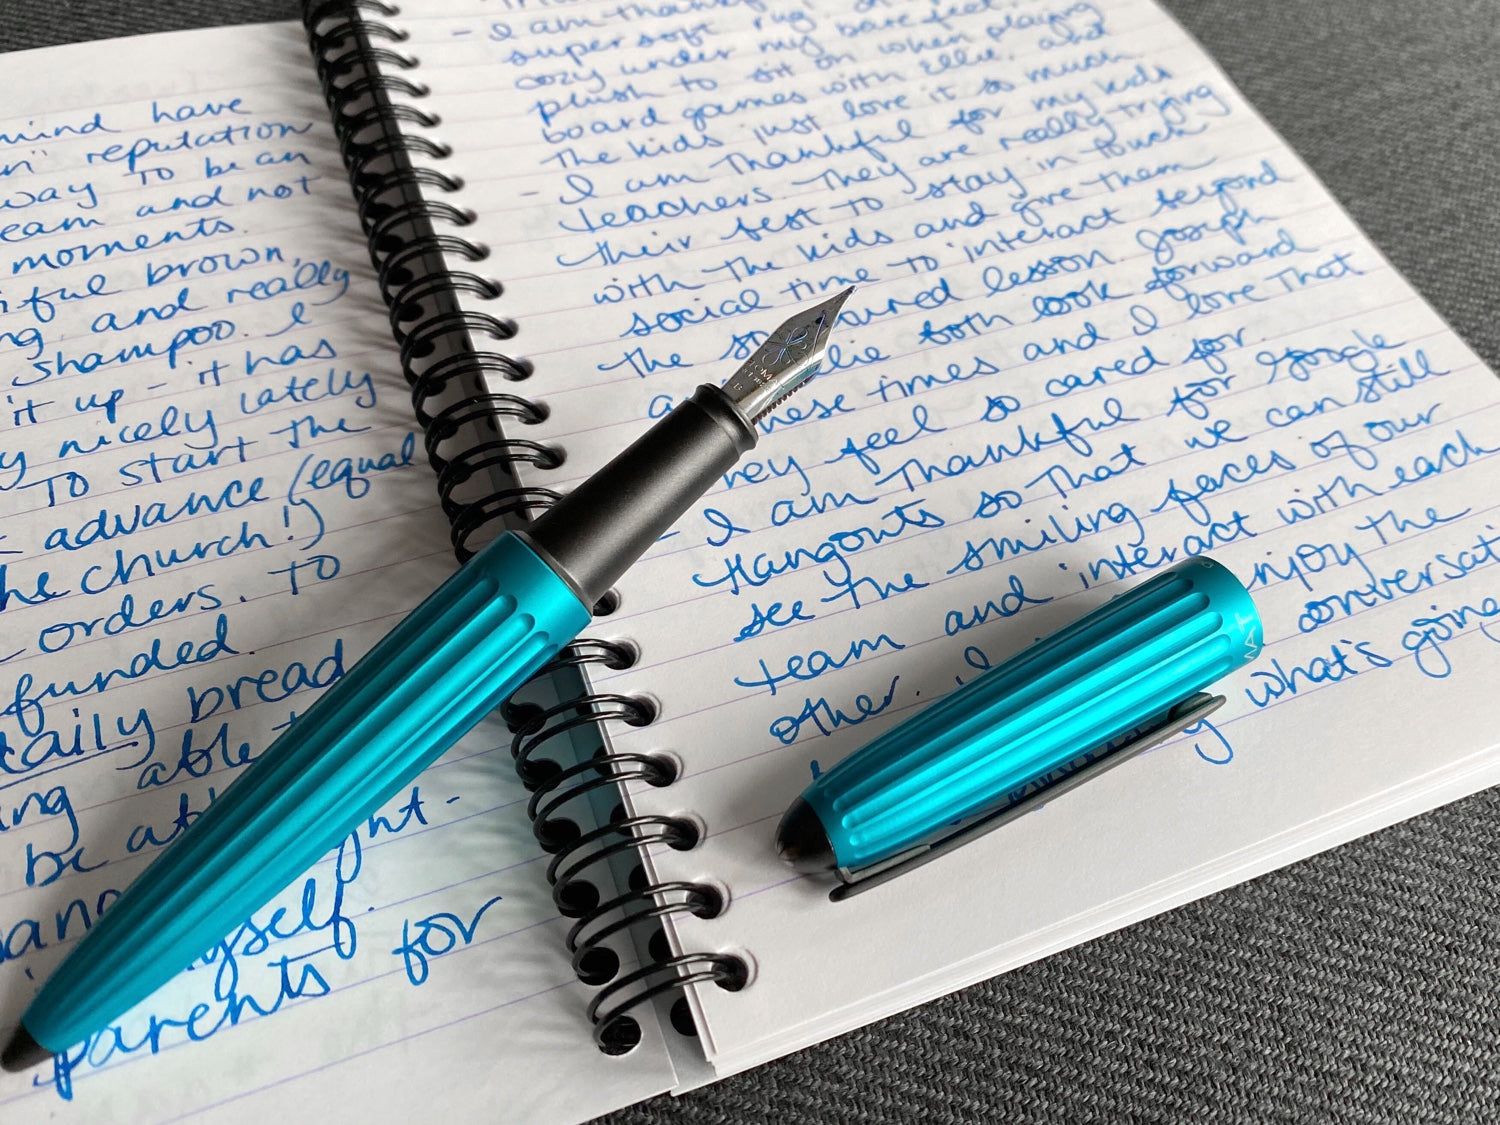 mind have
reputation
way to be an
team and not
moments.
brown,
and really
shampoo. I
it up - it has
nicely lately
To start the
advance (equal
the church!)
orders. To
funded.
daily bread
able
be
myself.
parents for
- I am
super soft rug.
cozy under my bare feet.
plush to sit on when playing
board games with Ellie. and
The kids just love it so much
- I am Thankful for my kids
teachers. They are really trying
their best to stay in touch
with the kids and give them
social time to interact beyond
the lesson. Joseph
both look forward
these times and I love that
they feel so cared for.
- I am Thankful for Google
Hangouts so that we can still
see the smiling faces of our
team and interact with each
other. I enjoy the
what's going